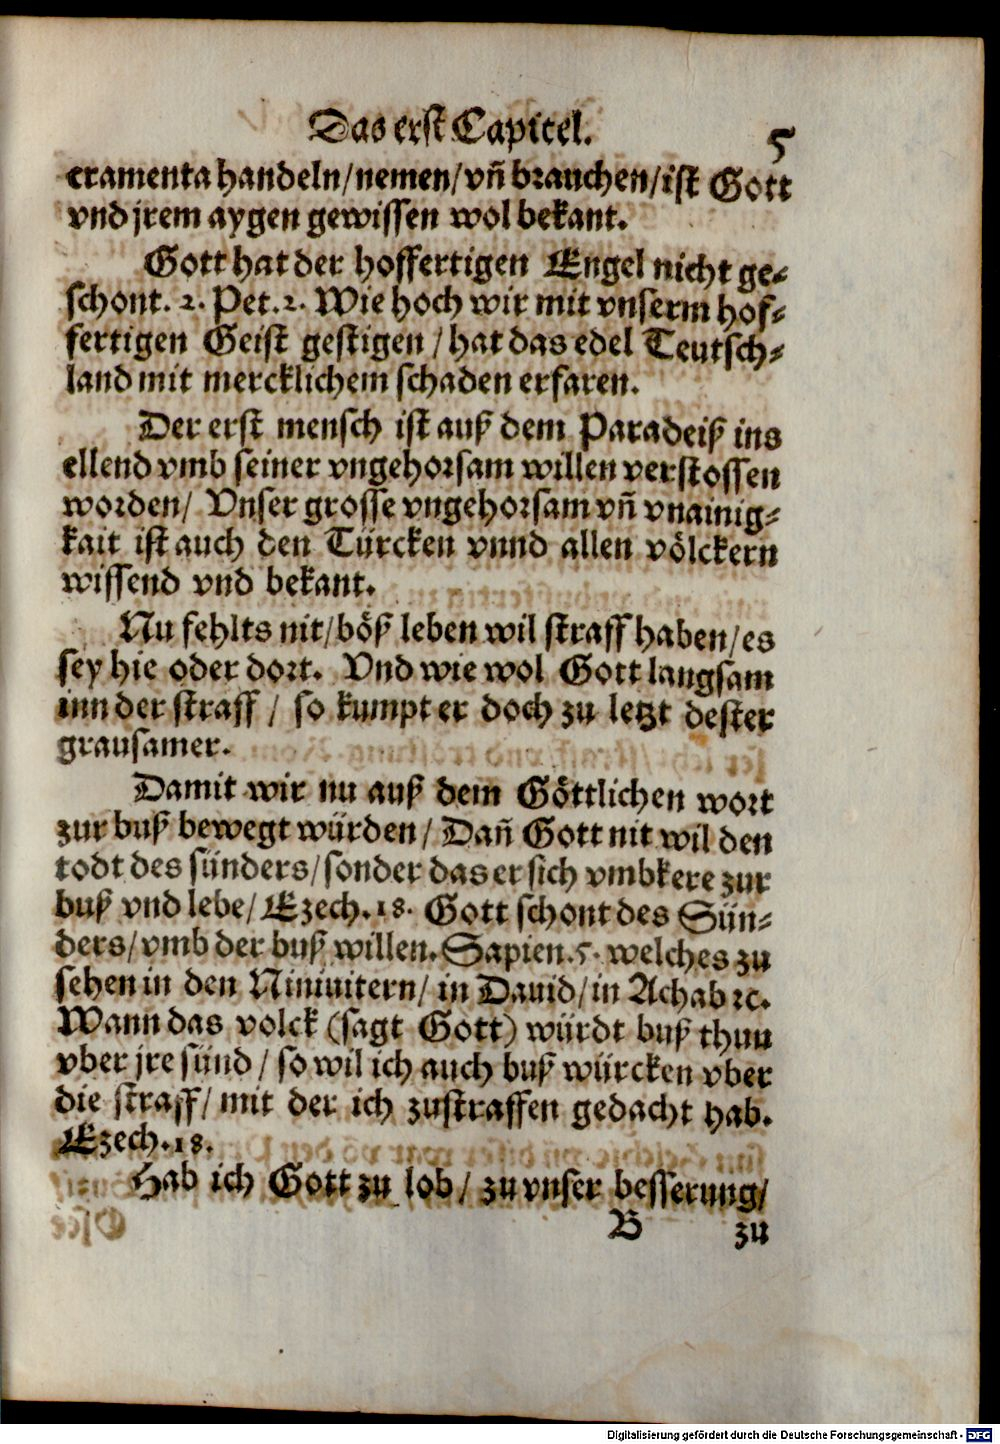 Das erst Capitel. 5
cramenta handeln/nemen/vñ brauchen/ist Gott
vnd jrem aygen gewissen wol bekant.
Gott hat der hoffertigen Engel nicht ge-
schont. 2. Pet. 2. Wie hoch wir mit vnserm hof-
fertigen Geist gestigen / hat das edel Teutsch-
land mit mercklichem schaden erfaren.
Der erst mensch ist auß dem Paradeiß ins
ellend vmb seiner vngehorsam willen verstossen
worden/ Vnser grosse vngehorsam vñ vnainig-
kait ist auch den Türcken vnnd allen völckern
wissend vnd bekant.
Nu fehlts nit/böß leben wil straff haben/es
sey hie oder dort. Vnd wie wol Gott langsam
inn der straff / so kumpt er doch zu letzt dester
grausamer.
Damit wir nu auß dem Göttlichen wort
zur buß bewegt würden/ Dañ Gott nit wil den
todt des sünders/sonder das er sich vmbkere zur
buß vnd lebe/ Ezech. 18. Gott schont des Sün-
ders/vmb der buß willen. Sapien. 5. welches zu
sehen in den Niniuitern/ in Dauid/in Achab ꝛc.
Wann das volck (sagt Gott) würdt buß thun
vber jre sünd / so wil ich auch buß würcken vber
die straff/ mit der ich zustraffen gedacht hab.
Ezech. 18.
Hab ich Gott zu lob/ zu vnser besserung/
B zu
Digitalisierung gefördert durch die Deutsche Forschungsgemeinschaft - DFG